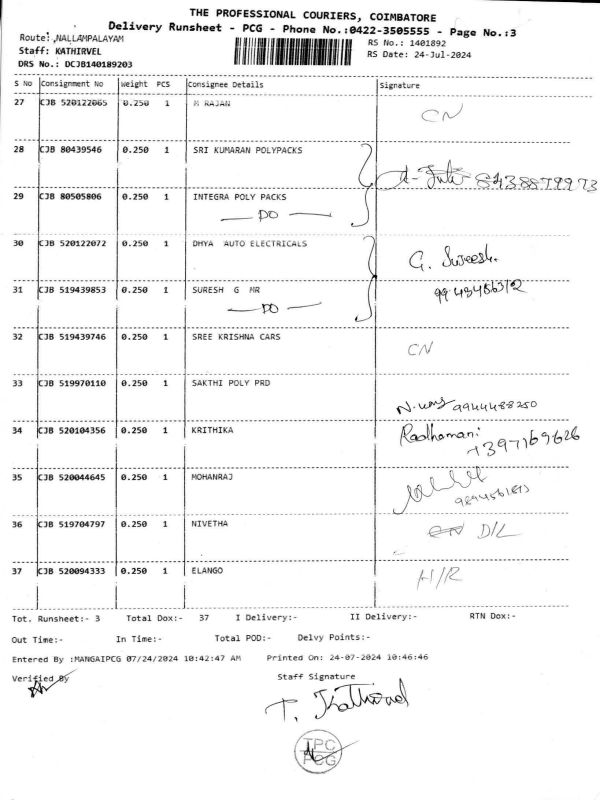 THE PROFESSIONAL COURIERS, COIMBATORE
Delivery Runsheet - PCG - Phone No.:0422-3505555 - Page No.:3
Route: ,NALLAMPALAYAM
RS No.: 1401892
Staff: KATHIRVEL
RS Date: 24-Jul-2024
DRS No.: DCJB140189203
S No Consignment No Weight PCS Consignee Details Signature
27 CJB 520122065 0.250 1 M RAJAN CN
28 CJB 80439546 0.250 1 SRI KUMARAN POLYPACKS
8438879973
29 CJB 80505806 0.250 1 INTEGRA POLY PACKS
— DO —
30 CJB 520122072 0.250 1 DHYA AUTO ELECTRICALS G. Sureesh.
31 CJB 519439853 0.250 1 SURESH G MR
— DO —
32 CJB 519439746 0.250 1 SREE KRISHNA CARS CN
33 CJB 519970110 0.250 1 SAKTHI POLY PRD
9944488250
34 CJB 520104356 0.250 1 KRITHIKA Radhamani
7397169626
35 CJB 520044645 0.250 1 MOHANRAJ
36 CJB 519704797 0.250 1 NIVETHA D/L
37 CJB 520094333 0.250 1 ELANGO H/R
Tot. Runsheet:- 3 Total Dox:- 37 I Delivery:- II Delivery:- RTN Dox:-
Out Time:- In Time:- Total POD:- Delvy Points:-
Entered By :MANGAIPCG 07/24/2024 10:42:47 AM Printed On: 24-07-2024 10:46:46
Verified By Staff Signature
T. Kathirvel
TPC
PCG